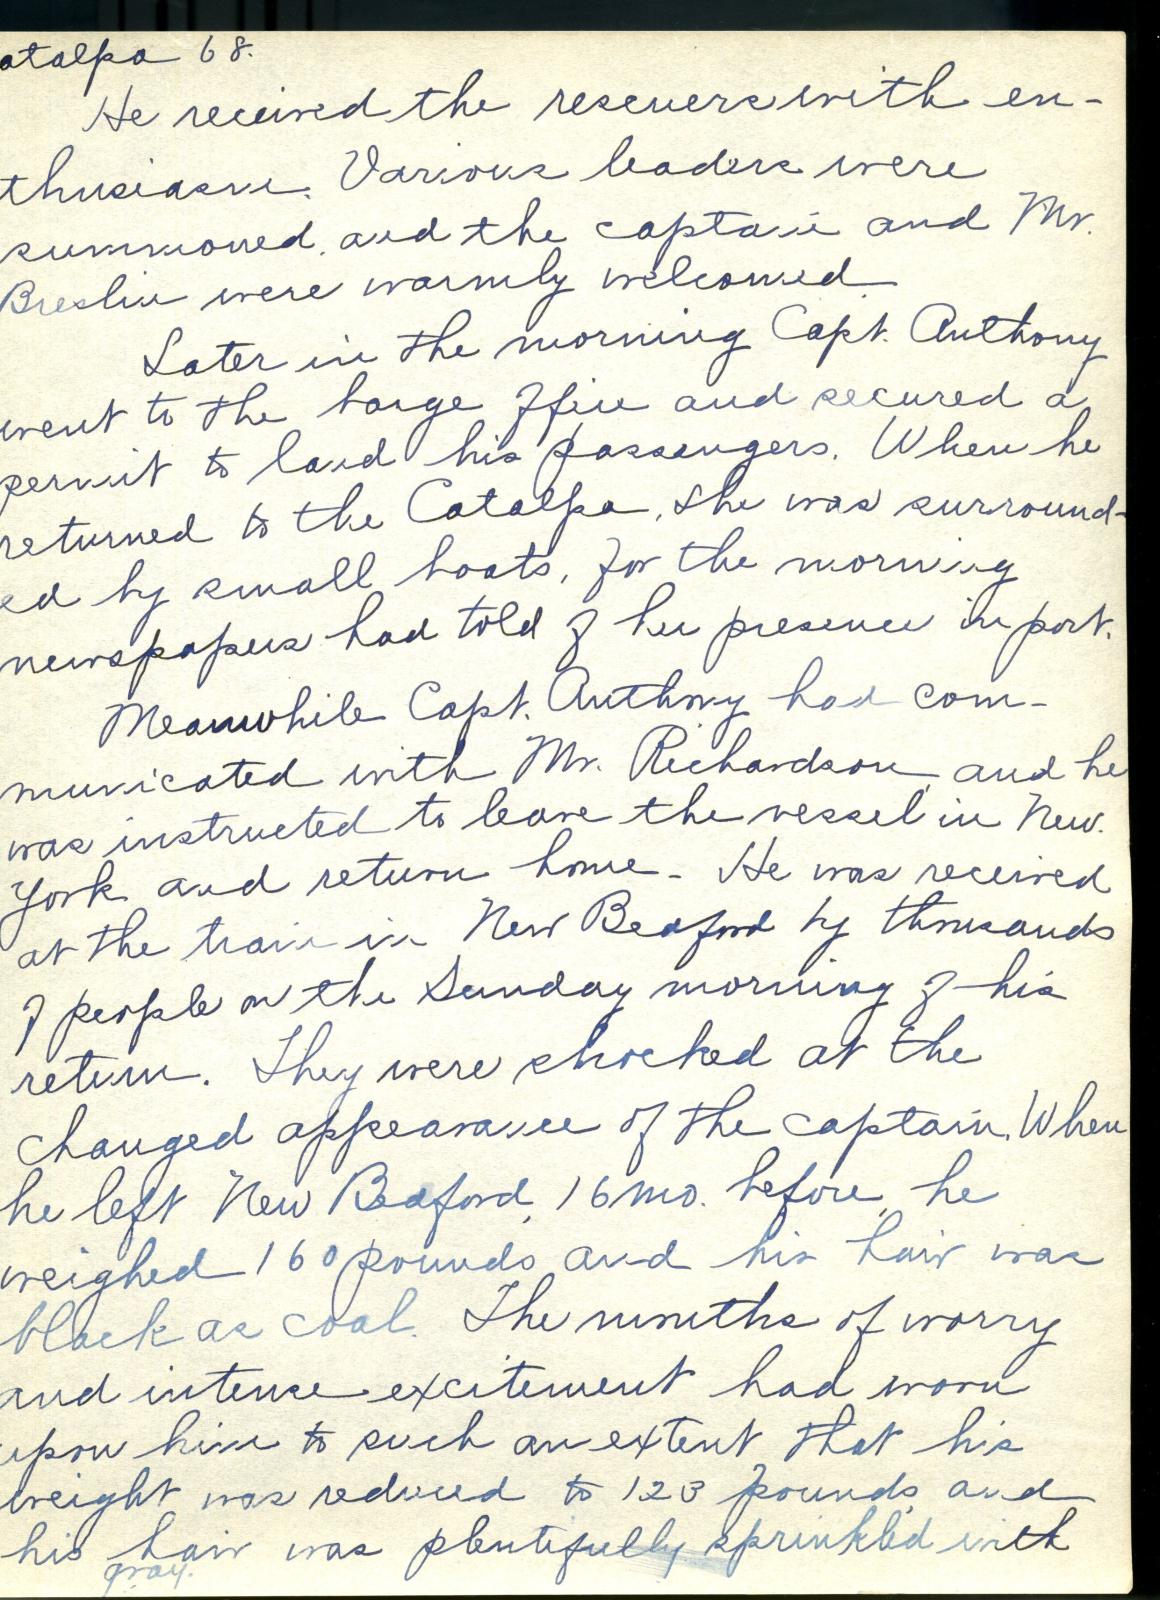 atalpa 68.
He received the rescuers with en-
thusiasm. Various leaders were
summoned, and the captain and Mr.
Breslin were warmly welcomed.
Later in the morning Capt. Anthony
went to the barge office and secured a
permit to land his passengers. When he
returned to the Catalpa, she was surround-
ed by small boats, for the morning
newspapers had told of her presence in port.
Meanwhile Capt. Anthony had com-
municated with Mr. Richardson, and he
was instructed to leave the vessel in New
York and return home. He was received
at the train in New Bedford by thousands
of people on the Sunday morning of his
return. They were shocked at the
changed appearance of the captain. When
he left New Bedford, 16 mo. before, he
weighed 160 pounds and his hair was
black as coal. The months of worry
and intense excitement had worn
upon him to such an extent that his
weight was reduced to 123 pounds and
his hair was plentifully sprinkled with
gray.